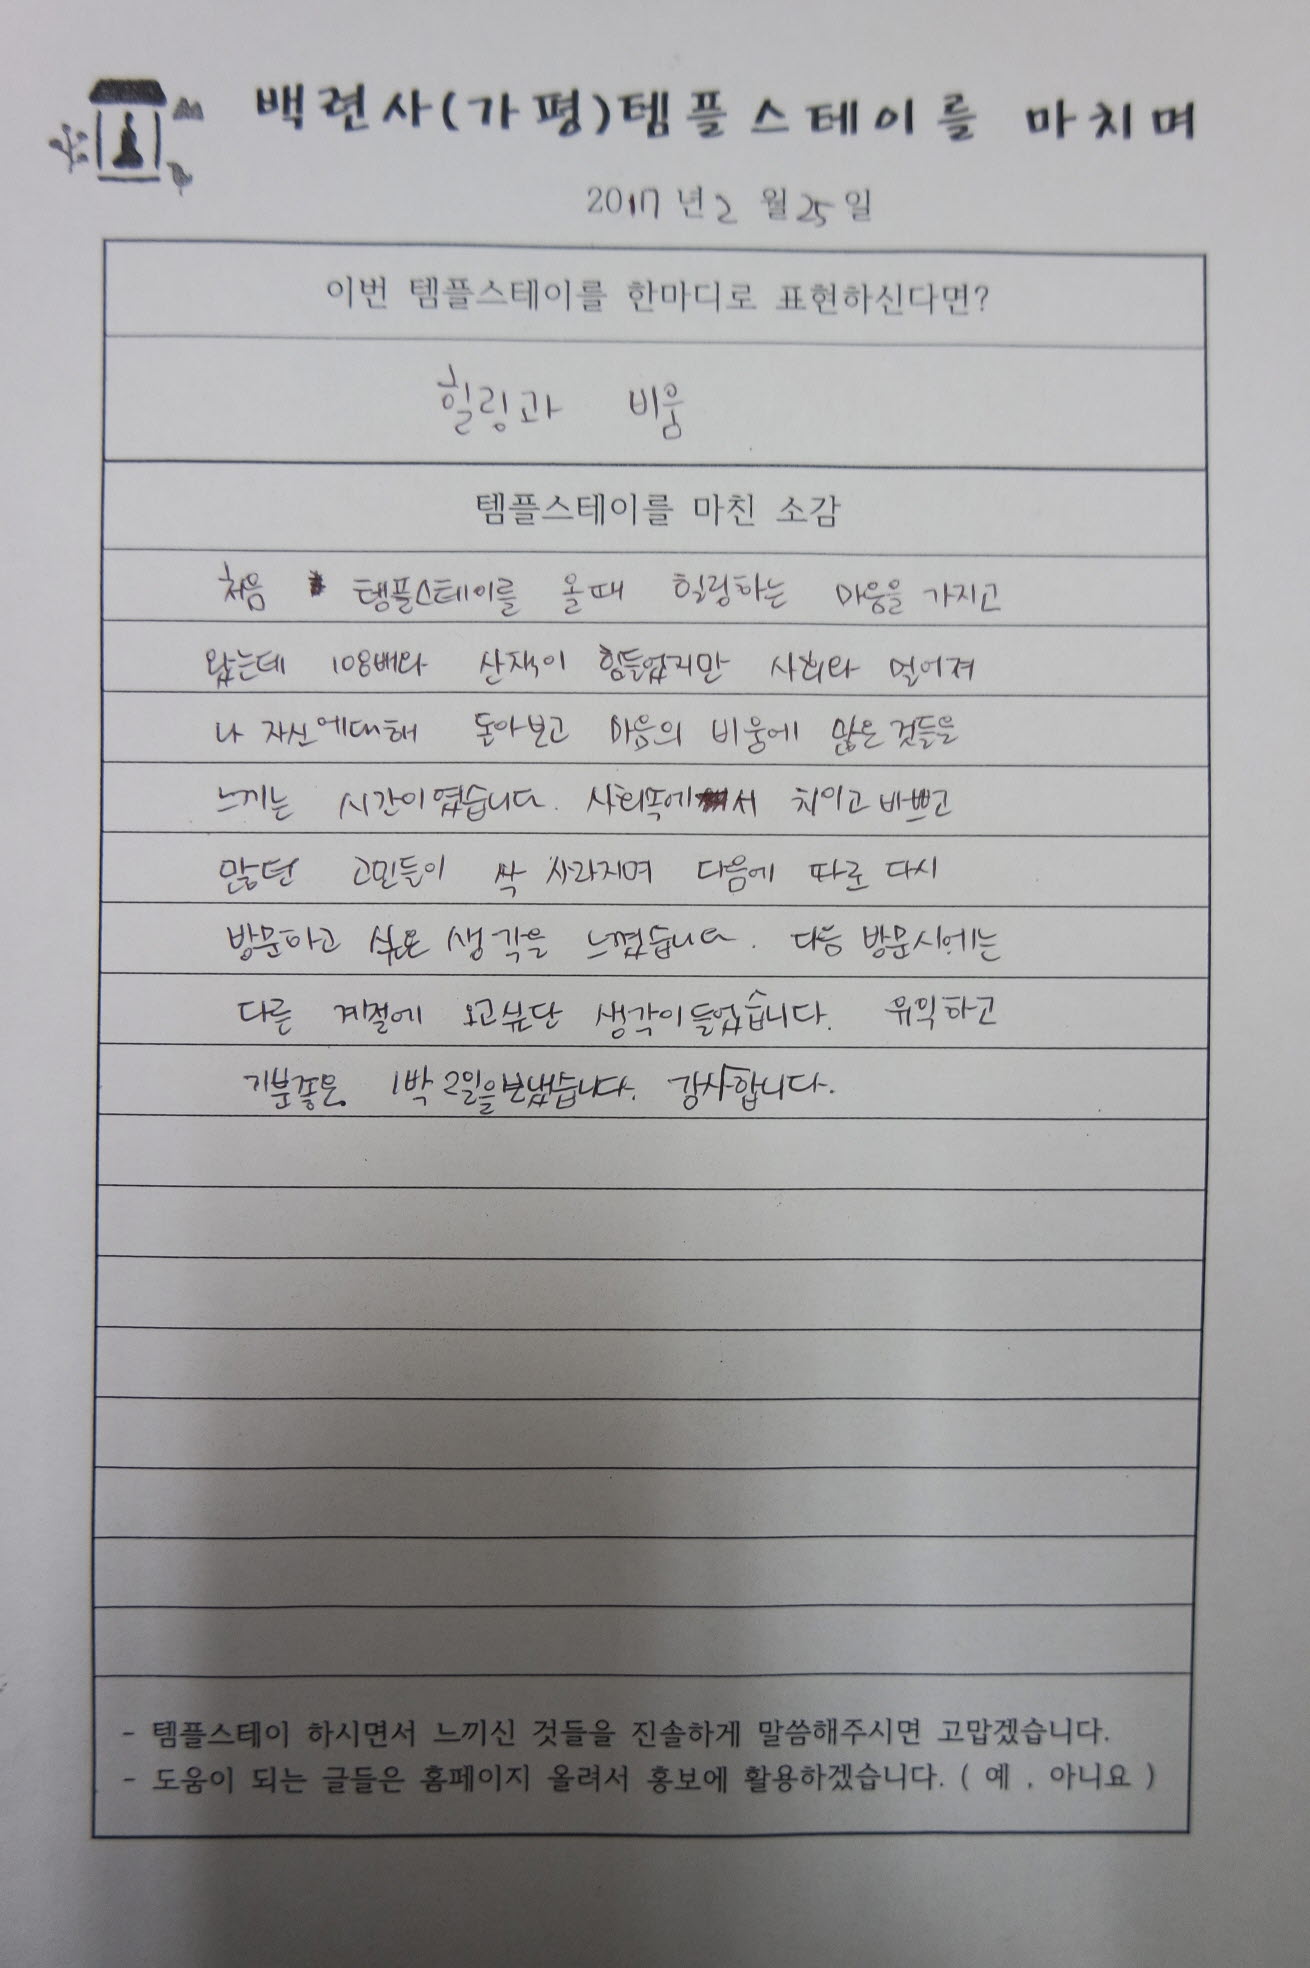 백련사(가평)템플스테이를 마치며
2017년 2월 25일
이번 템플스테이를 한마디로 표현하신다면?
힐링과 비움
템플스테이를 마친 소감
처음 템플스테이를 올때 힐링하는 마음을 가지고
왔는데 108배와 산책이 힘들었지만 사회와 멀어져
나 자신에대해 돌아보고 마음의 비움에 많은것들을
느끼는 시간이였습니다. 사회속에서 치이고 바쁘고
많던 고민들이 싹 사라지며 다음에 따로 다시
방문하고 싶은 생각을 느꼈습니다. 다음 방문시에는
다른 계절에 오고싶단 생각이들었습니다. 유익하고
기분좋은 1박 2일을보냈습니다. 감사합니다.
- 템플스테이 하시면서 느끼신 것들을 진솔하게 말씀해주시면 고맙겠습니다.
- 도움이 되는 글들은 홈페이지 올려서 홍보에 활용하겠습니다. ( 예 , 아니요 )